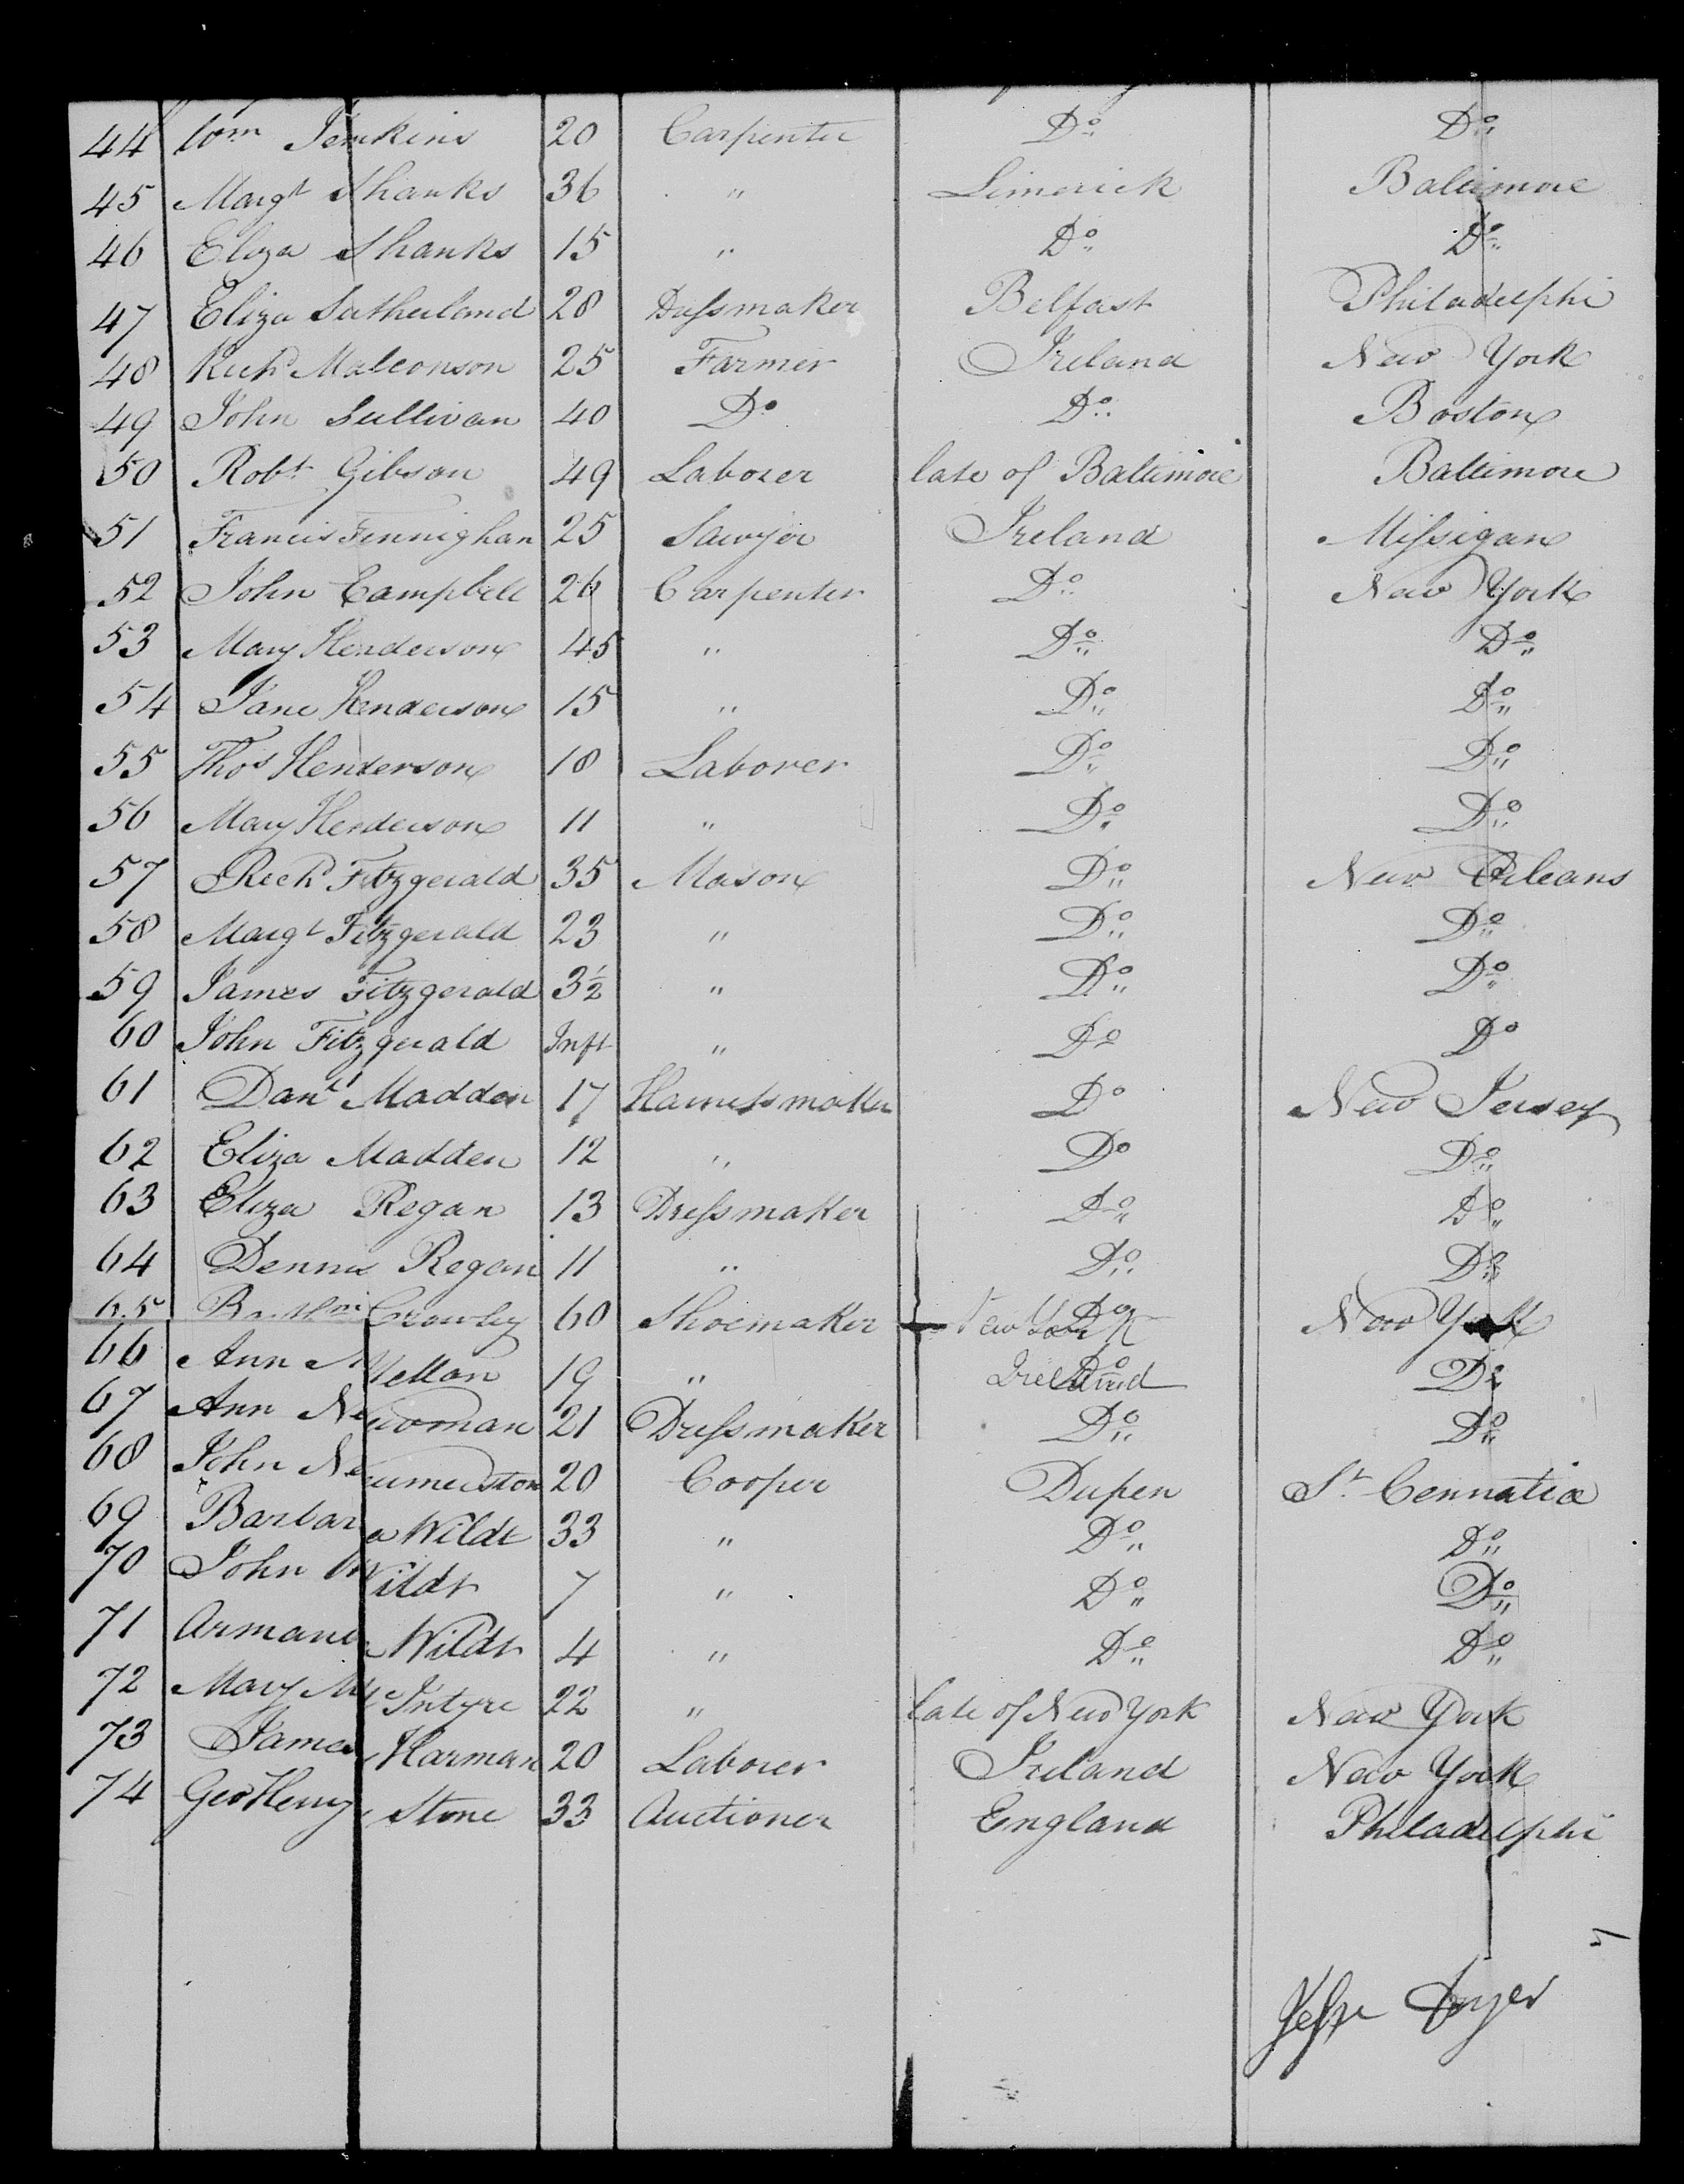 44 Wm Jenkins 20 Carpenter Do Do
45 Margt Shanks 36 " Limerick Baltimore
46 Eliza Shanks 15 " Do Do
47 Eliza Sutherland 28 Dressmaker Belfast Philadelphi
48 Richd Malconson 25 Farmer Ireland New York
49 John Sullivan 40 Do Do Boston
50 Robt Gibson 49 Laborer late of Baltimore Baltimore
51 Francis Finnighan 25 Sawyer Ireland Missigan
52 John Campbell 26 Carpenter Do New York
53 Mary Henderson 45 " Do Do
54 Jane Henderson 15 " Do Do
55 Thos Henderson 18 Laborer Do Do
56 Mary Henderson 11 " Do Do
57 Richd Fitzgerald 35 Mason Do New Orleans
58 Margt Fitzgerald 23 " Do Do
59 James Fitzgerald 3½ " Do Do
60 John Fitzgerald Inft " Do Do
61 Danl Madden 17 Harnessmaker Do New Jersey
62 Eliza Madden 12 " Do Do
63 Eliza Regan 13 Dressmaker Do Do
64 Dennis Regan 11 " Do Do
65 Crowley 60 Shoemaker New York Do New York
66 Ann Mellon 19 " Ireland Do Do
67 Ann Newoman 21 Dressmaker Do Do
68 John 20 Cooper Dupen St. Cennatia
69 Barbara Wildt 33 " Do Do
70 John Wildt 7 " Do Do
71 Wildt 4 " Do Do
72 Mary McIntyre 22 " late of New York New York
73 James Harman 20 Laborer Ireland New York
74 Geo Henry Stone 33 Auctioner England Philadelphi
Jesse Dryer